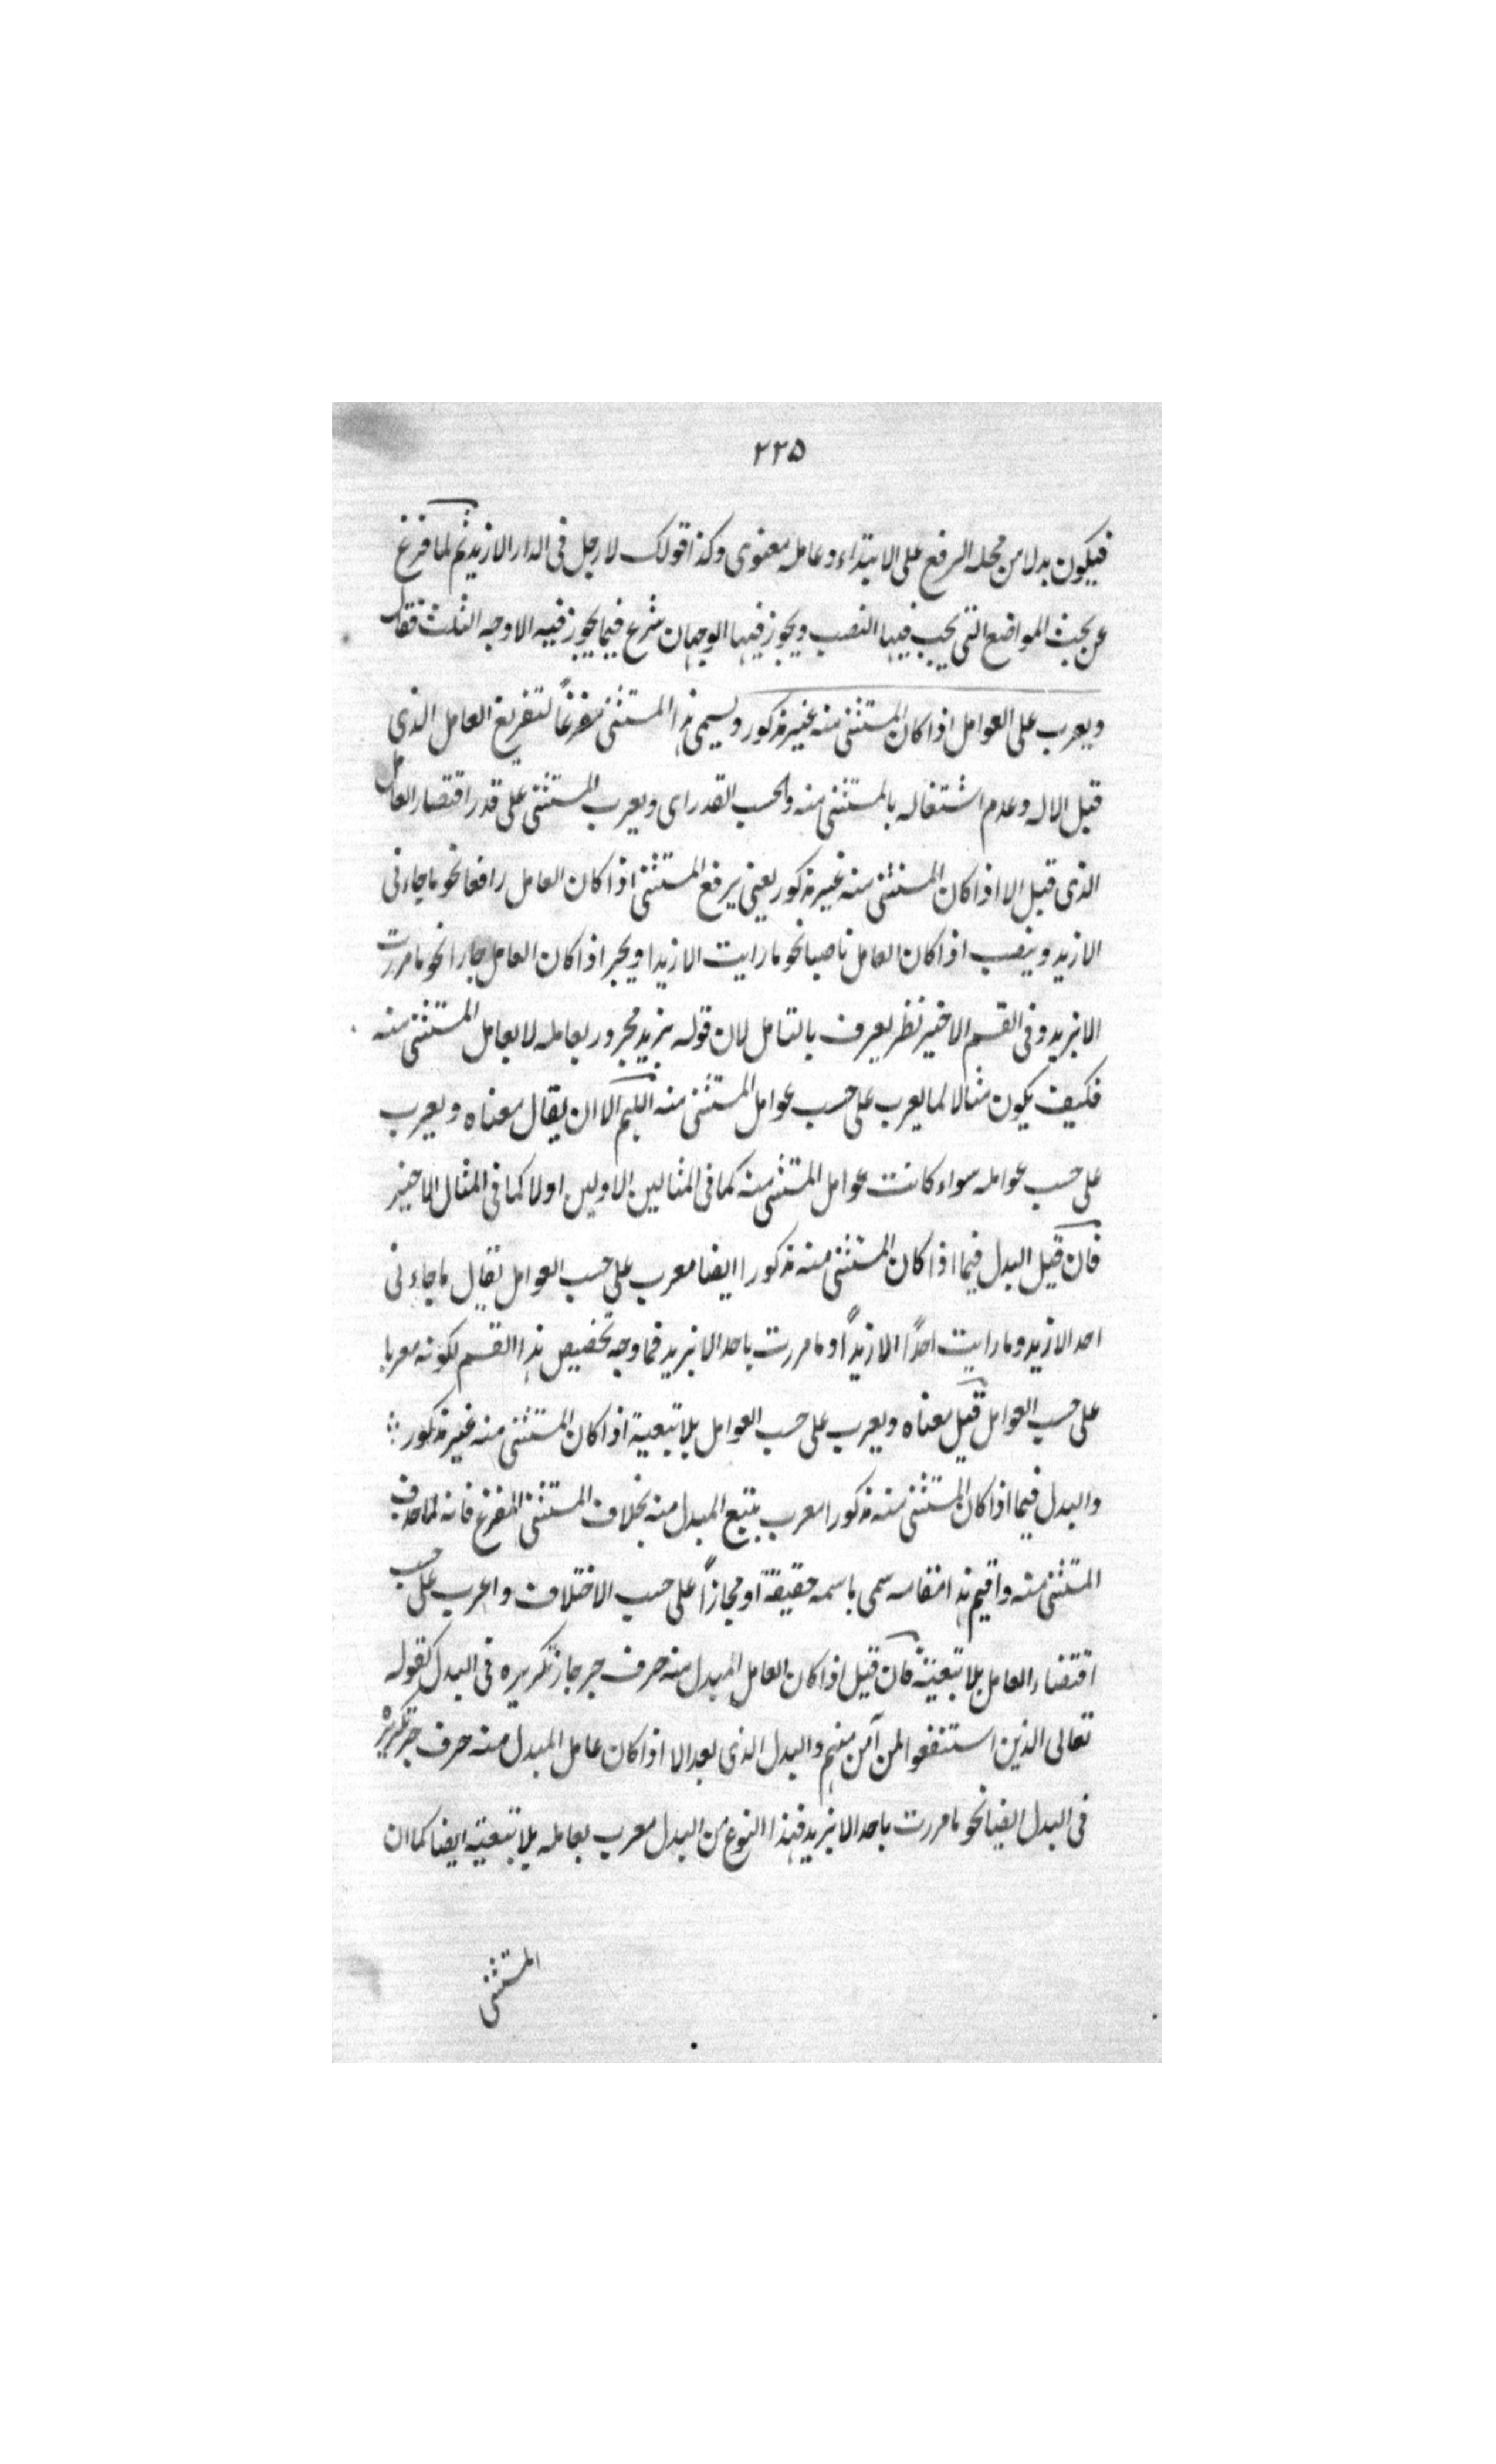 ٢٢٥
فيكون بدلا من محله الرفع على الابتداء وعامله معنوى وكذا قولك لا رجل فى الدار الا زيد ثم لما فرغ
عن بحث المواضع التى يجب فيها النصب ويجوز فيها الوجهان شرع فيما يجوز فيه الاوجه الثلث فقال
ويعرب على العوامل اذا كان المستثنى منه غير مذكور ويسمى هذا المستثنى مفرغاً لتفريغ العامل الذى
قبل الا له وعدم اشتغاله بالمستثنى منه والحسب القدر اى ويعرب المستثنى على قدر اقتضار العامل
الذى قبل الا اذا كان المستثنى منه غير مذكور يعنى يرفع المستثنى اذا كان العامل رافعا نحو ما جاءنى
الا زيد وينصب اذا كان العامل ناصبا نحو ما رايت الا زيدا ويجر اذا كان العامل جارا نحو ما مررت
الا بزيد وفى القسم الاخير نظر يعرف بالتامل لان قوله بزيد مجرور بعامله لا بعامل المستثنى منه
فكيف يكون مثالا لما يعرب على حسب عوامل المستثنى منه اللهم الا ان يقال معناه ويعرب
على حسب عوامله سواء كانت عوامل المستثنى منه كما فى المثالين الاولين اولا كما فى المثال الاخير
فان قيل البدل فيما اذا كان المستثنى منه مذكورا ايضا معرب على حسب العوامل تقال ما جاءنى
احد الا زيد وما رايت احداً الا زيداً وما مررت باحد الا بزيد فما وجه تخصيص هذا القسم لكونه معربا
على حسب العوامل قيل معناه ويعرب على حسب العوامل بلا تبعية اذا كان المستثنى منه غير مذكور
والبدل فيما اذا كان المستثنى منه مذكورا معرب بتبع المبدل منه بخلاف المستثنى المفرغ فانه لما حذف
المستثنى منه واقيم هذا مقامه سمى باسمه حقيقة او مجازاً على حسب الاختلاف واعرب على حسب
اقتضاء العامل بلا تبعية فان قيل اذا كان العامل المبدل منه حرف جر جاز تكريره فى البدل كقوله
تعالى الذين استضعفوا لمن آمن منهم والبدل الذى بعد الا اذا كان عامل المبدل منه حرف جر تكريره
فى البدل ايضا نحو ما مررت باحد الا بزيد فهذا النوع من البدل معرب بعامله بلا تبعية ايضا كما ان
المستثنى